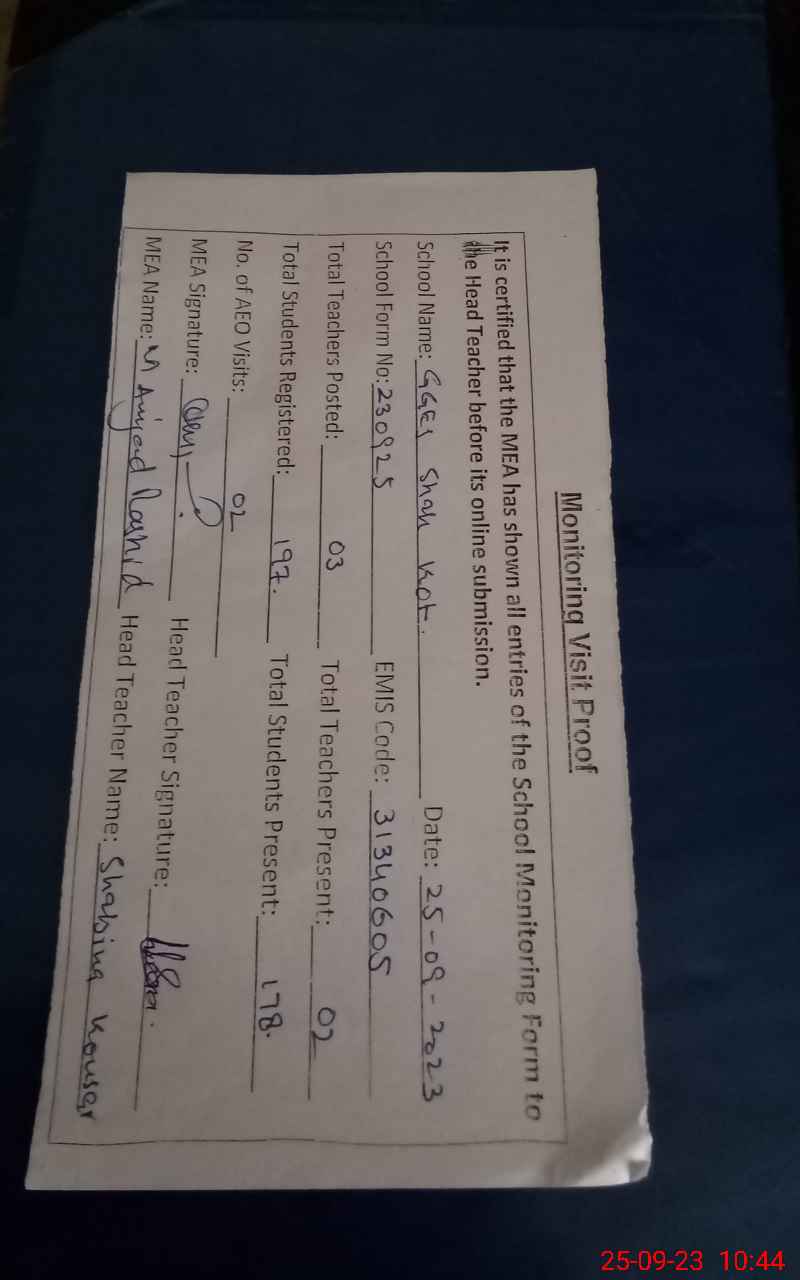 Monitoring Visit Proof
It is certified that the MEA has shown all entries of the School Monitoring Form to
the Head Teacher before its online submission.
School Name: GGES Shah Kot. Date: 25-09-2023
School Form No: 230925 EMIS Code: 31340605
Total Teachers Posted: 03 Total Teachers Present: 02
Total Students Registered: 197. Total Students Present: 178.
No. of AEO Visits: 02
MEA Signature: Head Teacher Signature:
MEA Name: M Amjad Rashid Head Teacher Name: Shabina Kousar
25-09-23 10:44